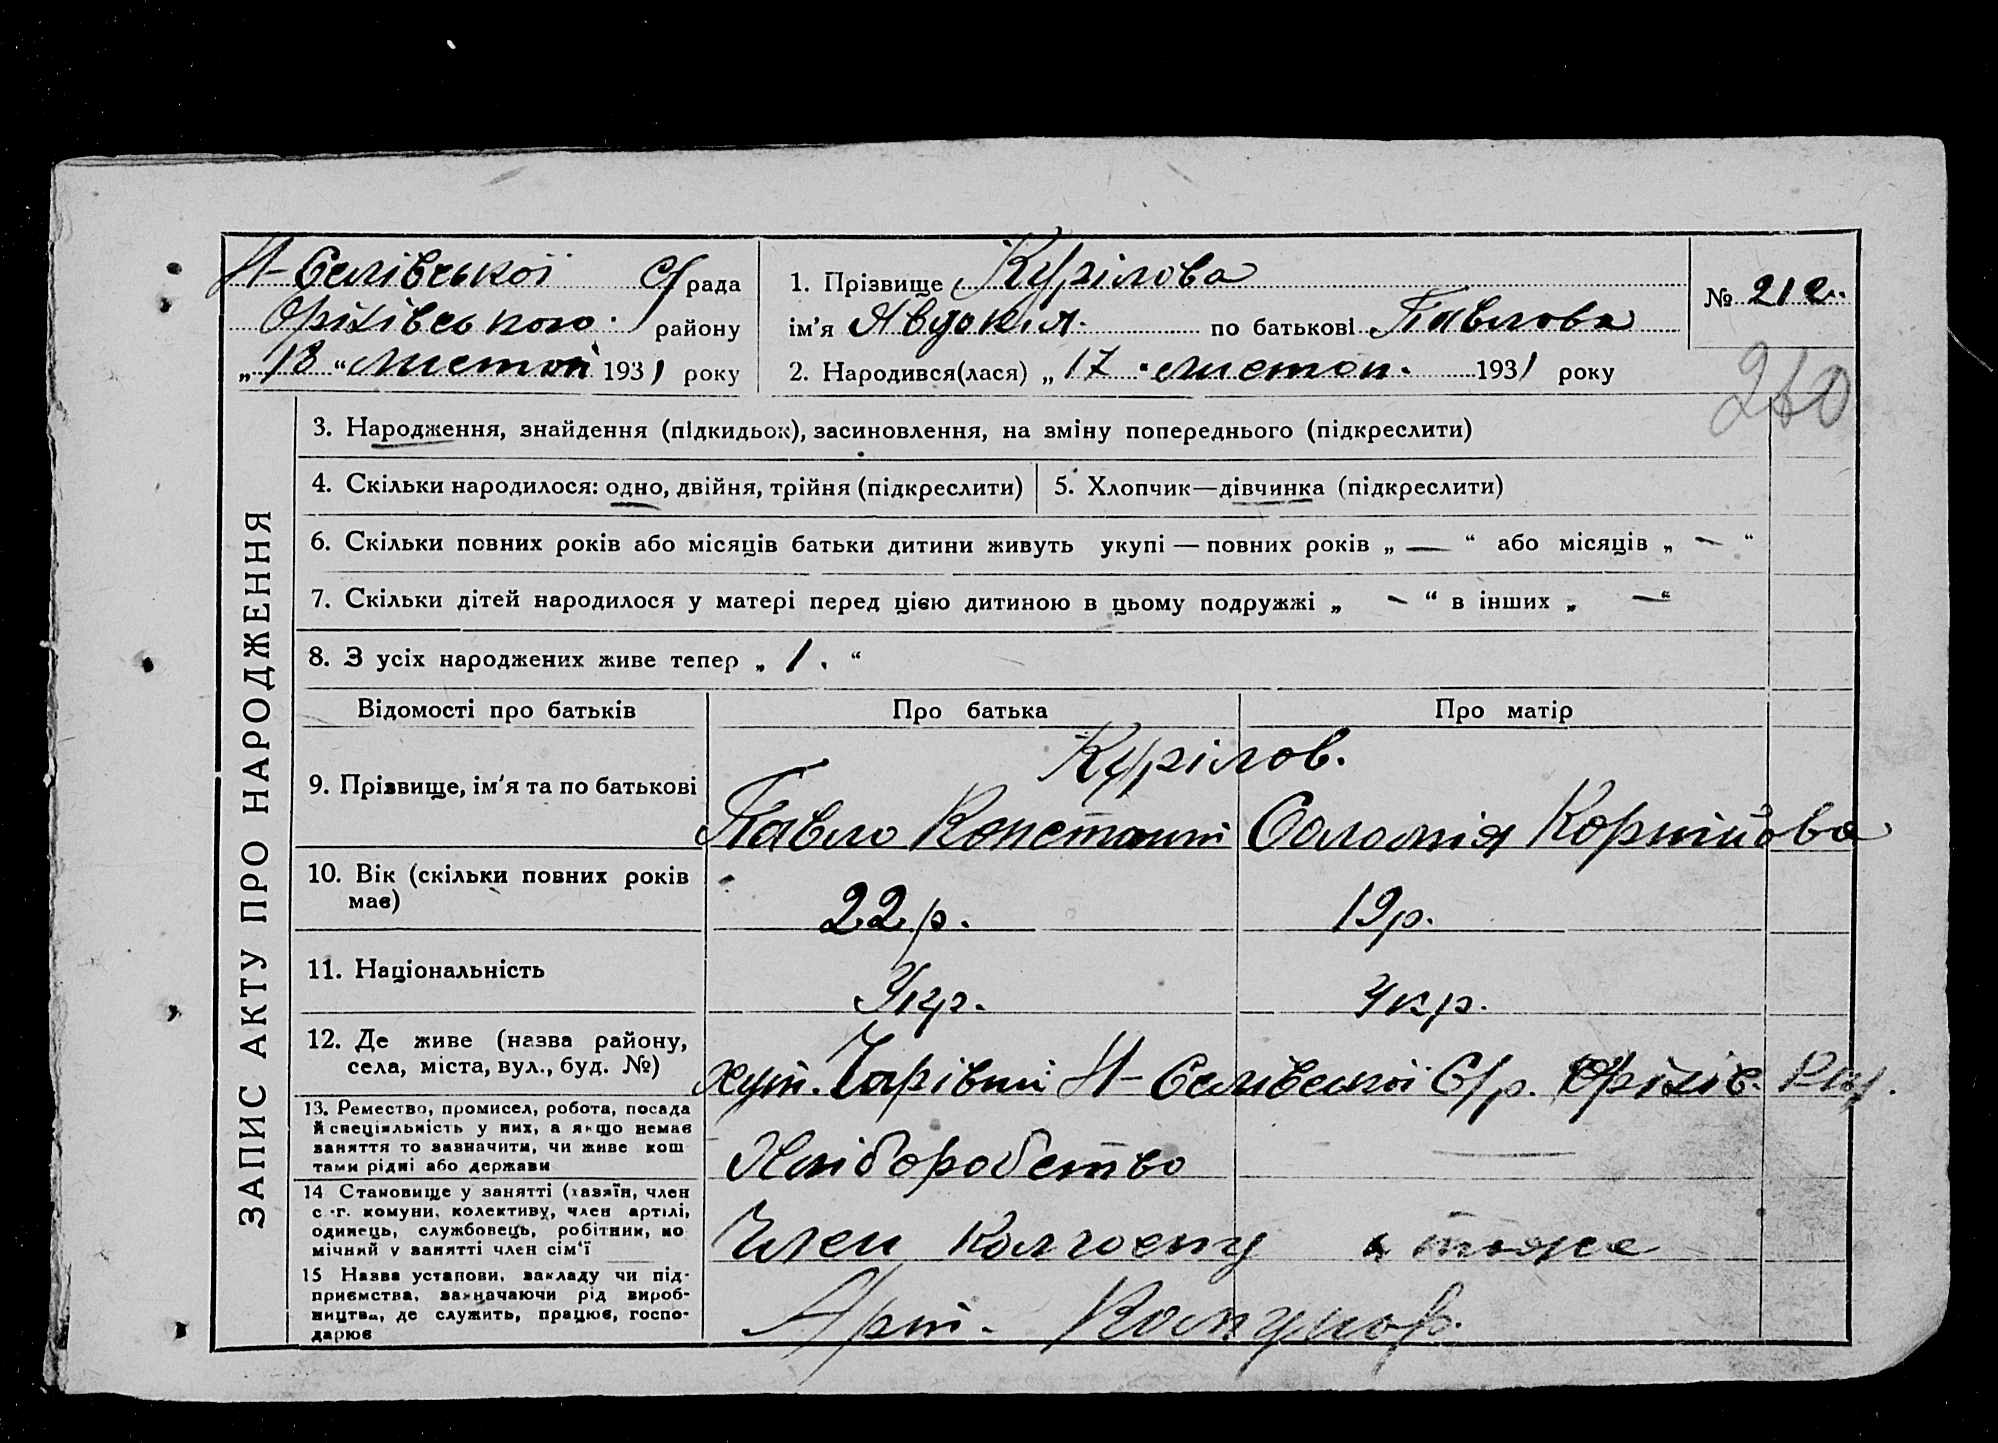 Н-Селівської С/рада
Оріхівського району
„ 18 “ листоп 1931 року
1. Прізвище Курілова
ім’я Явдокія. по батькові Павлова
2. Народився(лася) „ 17 “ листоп. 1931 року
№ 212.
260
ЗАПИС АКТУ ПРО НАРОДЖЕННЯ
3. Народження, знайдення (підкидьок), засиновлення, на зміну попереднього (підкреслити)
4. Скільки народилося: одно, двійня, трійня (підкреслити)
5. Хлопчик—дівчинка (підкреслити)
6. Скільки повних років або місяців батьки дитини живуть укупі — повних років „ — “ або місяців „ — “
7. Скільки дітей народилося у матері перед цією дитиною в цьому подружжі „ — “ в інших „ — “
8. З усіх народжених живе тепер „ 1. “
Відомості про батьків Про батька Про матір
9. Прізвище, ім’я та по батькові
Курілов.
Павло Констант Соломія Корнійова
10. Вік (скільки повних років
має)
22 р. 19 р.
11. Національність
Укр. Укр.
12. Де живе (назва району,
села, міста, вул., буд. №)
хут. Чарівний Н-Селівської С/р. Оріхів. Рай.
13. Ремество, промисел, робота, посада
й спеціяльність у них, а якщо немає
заняття то зазначити, чи живе кош
тами рідні або держави
Хліборобство —
14 Становище у занятті (хазяїн, член
с.-г. комуни, колективу, член артілі,
одинець, службовець, робітник, по
мічний у занятті член сім’ї
Член колгоспу тоже
15 Назва установи, закладу чи під-
приємства, зазначаючи рід вироб-
ництва, де служить, працює, госпо-
дарює
Арт.